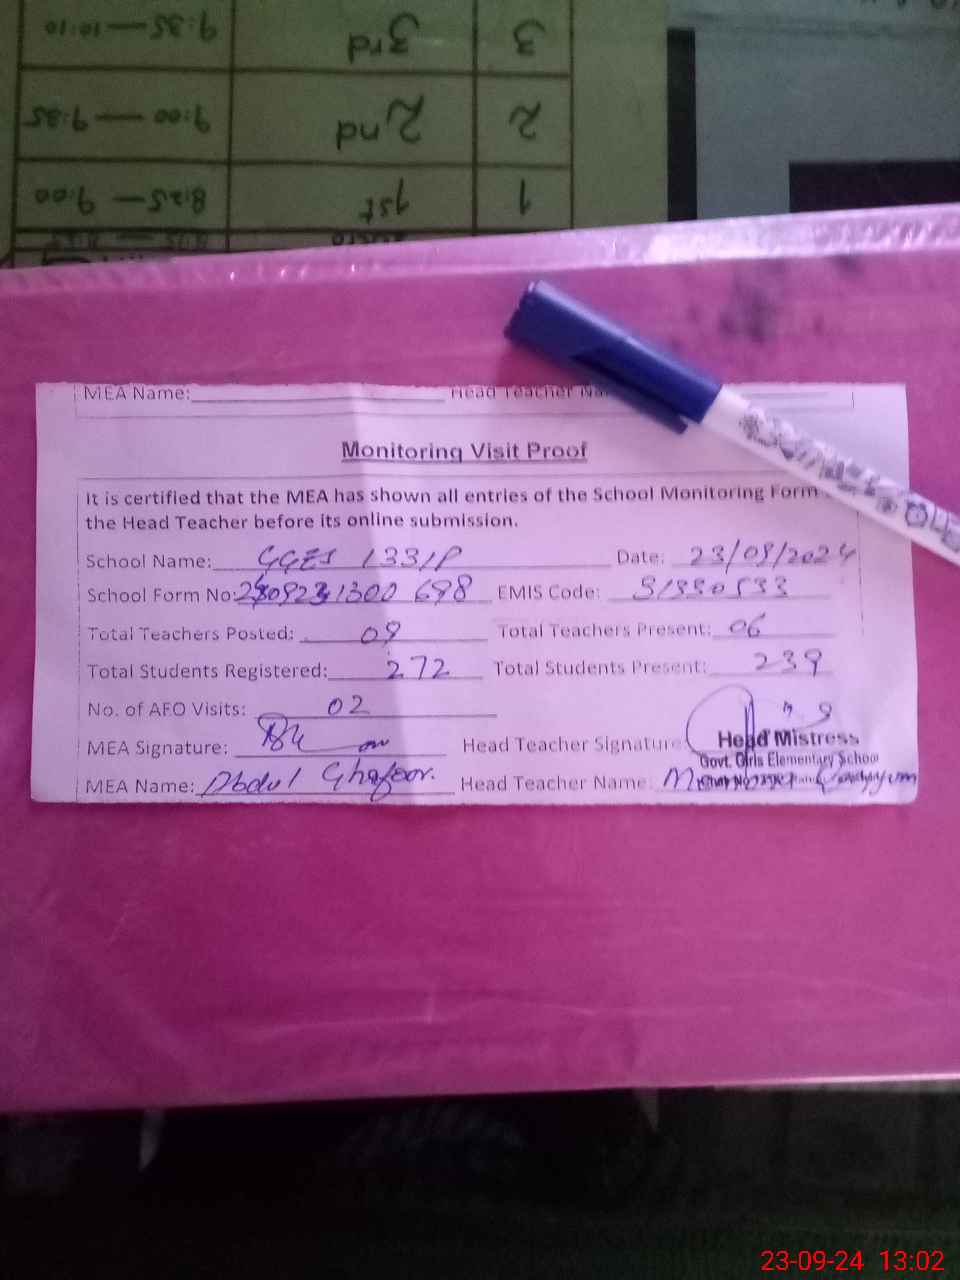 3 3rd 9:35 — 10:10
2 2nd 9:00 — 9:35
1 1st 8:25 — 9:00
MEA Name: Head Teacher
Monitoring Visit Proof
It is certified that the MEA has shown all entries of the School Monitoring Form
the Head Teacher before its online submission.
School Name: GGES 133/P Date: 23/09/2024
School Form No: EMIS Code:
Total Teachers Posted: 09 Total Teachers Present: 06
Total Students Registered: 272 Total Students Present: 239
No. of AEO Visits: 02
MEA Signature: Head Teacher Signature:
Head Mistress
Govt. Girls Elementary School
MEA Name: Abdul Ghafoor. Head Teacher Name:
23-09-24 13:02